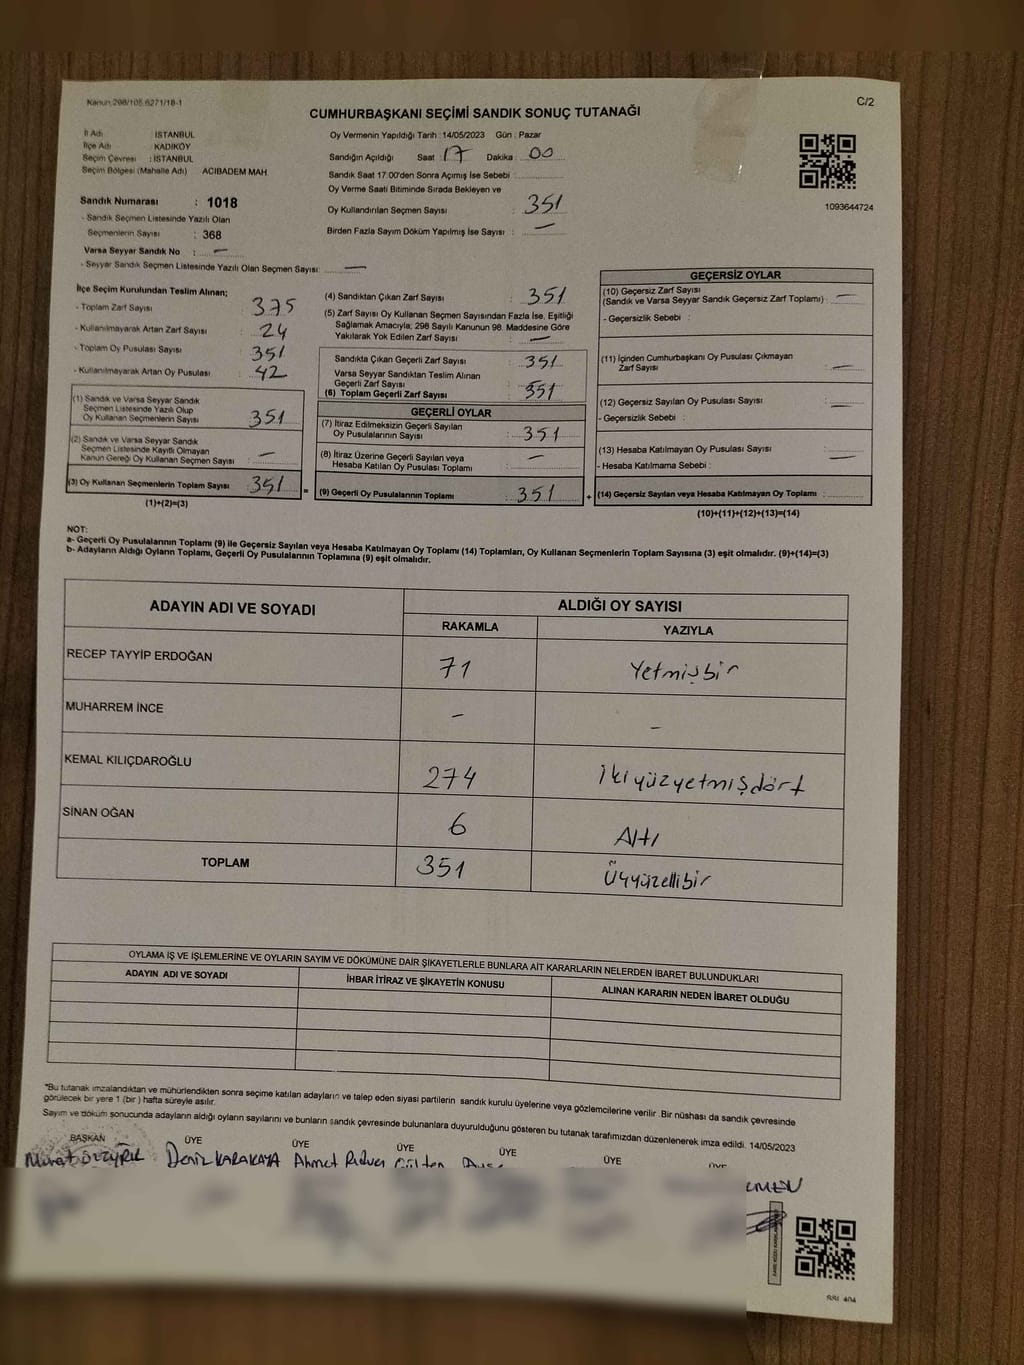 Kanun 298/105.6271/18-1
C/2
CUMHURBAŞKANI SEÇİMİ SANDIK SONUÇ TUTANAĞI
İl Adı : İSTANBUL
İlçe Adı : KADIKÖY
Seçim Çevresi : İSTANBUL
Seçim Bölgesi (Mahalle Adı) ACIBADEM MAH.
Sandık Numarası : 1018
- Sandık Seçmen Listesinde Yazılı Olan
Seçmenlerin Sayısı : 368
Varsa Seyyar Sandık No : —
- Seyyar Sandık Seçmen Listesinde Yazılı Olan Seçmen Sayısı: —
Oy Vermenin Yapıldığı Tarih :14/05/2023 Gün : Pazar
Sandığın Açıldığı Saat 17 Dakika : 00
Sandık Saat 17:00'den Sonra Açımış İse Sebebi :
Oy Verme Saati Bitiminde Sırada Bekleyen ve
Oy Kullandırılan Seçmen Sayısı : 351
Birden Fazla Sayım Döküm Yapılmış İse Sayısı : —
1093644724
İlçe Seçim Kurulundan Teslim Alınan;
- Toplam Zarf Sayısı : 375
- Kullanılmayarak Artan Zarf Sayısı : 24
- Toplam Oy Pusulası Sayısı : 351
- Kullanılmayarak Artan Oy Pusulası : 42
(1) Sandık ve Varsa Seyyar Sandık
Seçmen Listesinde Yazılı Olup
Oy Kullanan Seçmenlerin Sayısı : 351
(2) Sandık ve Varsa Seyyar Sandık
Seçmen Listesinde Kayıtlı Olmayan
Kanun Gereği Oy Kullanan Seçmen Sayısı : —
(3) Oy Kullanan Seçmenlerin Toplam Sayısı : 351
(1)+(2)=(3)
(4) Sandıktan Çıkan Zarf Sayısı : 351
(5) Zarf Sayısı Oy Kullanan Seçmen Sayısından Fazla İse, Eşitliği
Sağlamak Amacıyla; 298 Sayılı Kanunun 98. Maddesine Göre
Yakılarak Yok Edilen Zarf Sayısı : —
Sandıkta Çıkan Geçerli Zarf Sayısı : 351
Varsa Seyyar Sandıktan Teslim Alınan
Geçerli Zarf Sayısı :
(6) Toplam Geçerli Zarf Sayısı : 351
GEÇERLİ OYLAR
(7) İtiraz Edilmeksizin Geçerli Sayılan
Oy Pusulalarının Sayısı : 351
(8) İtiraz Üzerine Geçerli Sayılan veya
Hesaba Katılan Oy Pusulası Toplamı : —
= (9) Geçerli Oy Pusulalarının Toplamı : 351 +
GEÇERSİZ OYLAR
(10) Geçersiz Zarf Sayısı
(Sandık ve Varsa Seyyar Sandık Geçersiz Zarf Toplamı) : —
- Geçersizlik Sebebi :
(11) İçinden Cumhurbaşkanı Oy Pusulası Çıkmayan
Zarf Sayısı : —
(12) Geçersiz Sayılan Oy Pusulası Sayısı : —
- Geçersizlik Sebebi :
(13) Hesaba Katılmayan Oy Pusulası Sayısı : —
- Hesaba Katılmama Sebebi :
(14) Geçersiz Sayılan veya Hesaba Katılmayan Oy Toplamı :
(10)+(11)+(12)+(13)=(14)
NOT:
a- Geçerli Oy Pusulalarının Toplamı (9) ile Geçersiz Sayılan veya Hesaba Katılmayan Oy Toplamı (14) Toplamları, Oy Kullanan Seçmenlerin Toplam Sayısına (3) eşit olmalıdır. (9)+(14)=(3)
b- Adayların Aldığı Oyların Toplamı, Geçerli Oy Pusulalarının Toplamına (9) eşit olmalıdır.
ADAYIN ADI VE SOYADI ALDIĞI OY SAYISI
RAKAMLA YAZIYLA
RECEP TAYYİP ERDOĞAN 71 Yetmişbir
MUHARREM İNCE - -
KEMAL KILIÇDAROĞLU 274 ikiyüzyetmişdört
SİNAN OĞAN 6 Altı
TOPLAM 351 Üçyüzellibir
OYLAMA İŞ VE İŞLEMLERİNE VE OYLARIN SAYIM VE DÖKÜMÜNE DAİR ŞİKAYETLERLE BUNLARA AİT KARARLARIN NELERDEN İBARET BULUNDUKLARI
ADAYIN ADI VE SOYADI İHBAR İTİRAZ VE ŞİKAYETİN KONUSU ALINAN KARARIN NEDEN İBARET OLDUĞU
*Bu tutanak imzalandıktan ve mühürlendikten sonra seçime katılan adayların ve talep eden siyasi partilerin sandık kurulu üyelerine veya gözlemcilerine verilir .Bir nüshası da sandık çevresinde
görülecek bir yere 1 (bir ) hafta süreyle asılır.
Sayım ve döküm sonucunda adayların aldığı oyların sayılarını ve bunların sandık çevresinde bulunanlara duyurulduğunu gösteren bu tutanak tarafımızdan düzenlenerek imza edildi. 14/05/2023
BAŞKAN ÜYE ÜYE ÜYE ÜYE ÜYE
Murat DENİZ KARAKAYA Ahmet